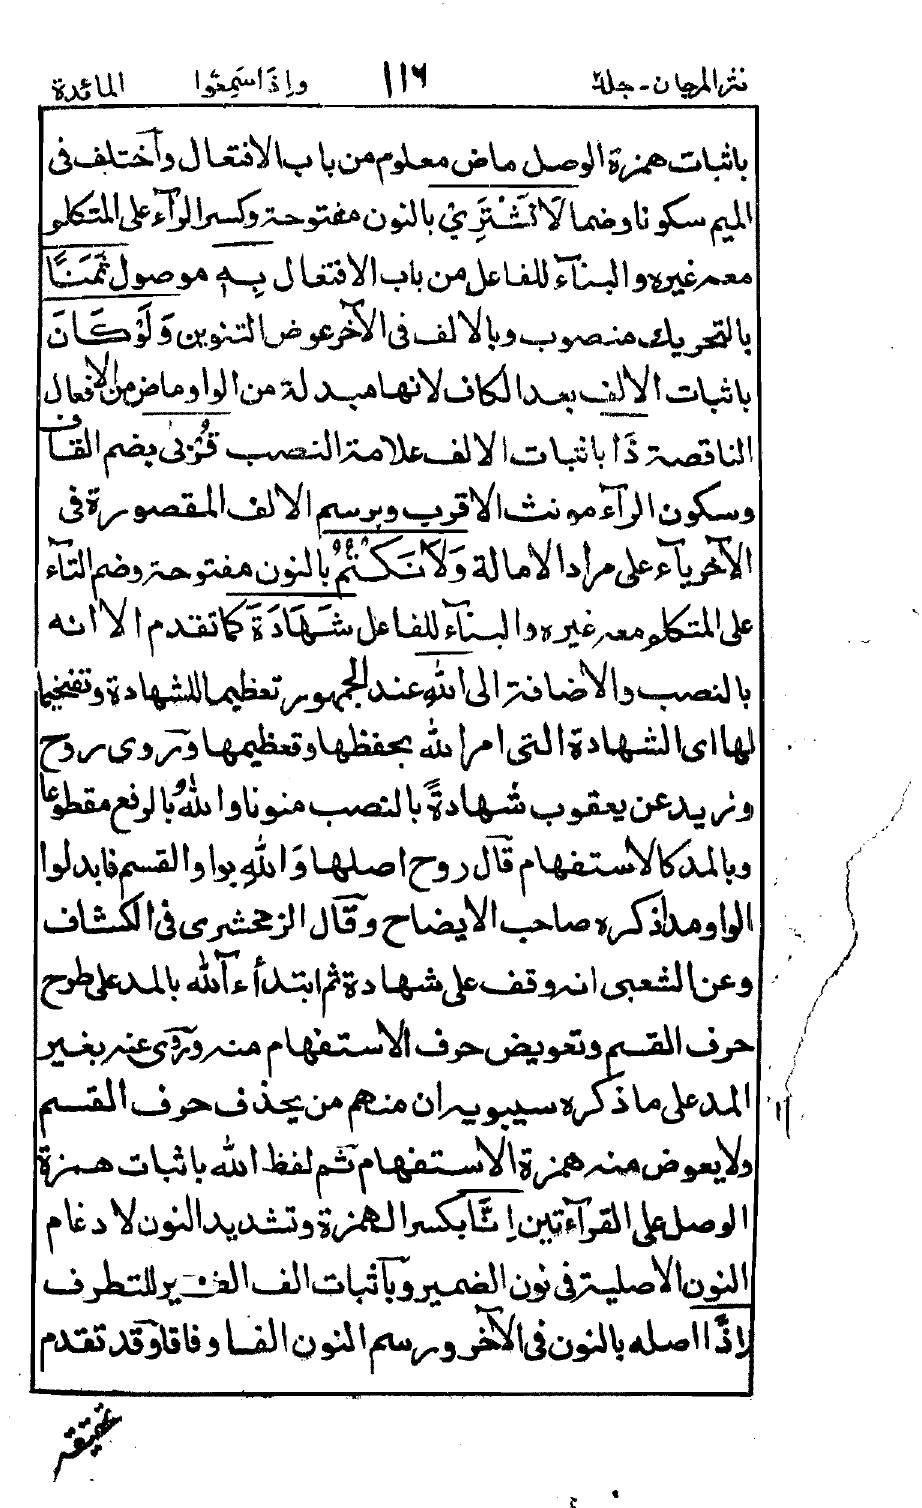 نثر المرجان - جلد ١١٦ واذا سمعوا المائدة
باثبات همزة الوصل ماض معلوم من باب الافتعال وآختلف فى
الميم سكونا وضما لَا نَشْتَرِيْ بالنون مفتوحة وكسر الرآء على المتكلم
معه غيره والبنآء للفاعل من باب الافتعال بِهٖ موصول ثَمَنًا
بالتحريك منصوب وبالالف فى الآخر عوض التنوين وَلَوْ كَانَ
باثبات الالف بعد الكاف لانها مبدلة من الواو ماض من الافعال
الناقصة ذَا باثبات الالف علامة النصب قُرْبٰى بضم القاف
وسكون الرآء مونث الاقرب وبرسم الالف المقصورة فى
الآخر يآء على مراد الامالة وَلَا نَكْتُمُ بالنون مفتوحة وضم التآء
على المتكلم معه غيره والبنآء للفاعل شَهَادَةَ كما تقدم الا انه
بالنصب والاضافة الى اللّٰهِ عند الجمهور تعظيما للشهادة وتفخيما
لها اى الشهادة التى امر الله بحفظها وتعظيمها وَروى روح
وزيد عن يعقوب شهادةً بالنصب منونا واللّٰهُ بالرفع مقطوعا
وبالمد كالاستفهام قال روح اصلها وَاللّٰهِ بواو القسم فابدلوا
الواو مدا ذكره صاحب الايضاح وقال الزمخشرى فى الكشاف
وعن الشعبى انه وقف على شهادة ثم ابتدأ ءآلله بالمد على طرح
حرف القسم وتعويض حرف الاستفهام منه وروى عنه بغير
المد على ما ذكره سيبويه ان منهم من يحذف حرف القسم
ولا يعوض منه همزة الاستفهام ثم لفظ الله باثبات همزة
الوصل على القرآءتين اِنَّا بكسر الهمزة وتشديد النون لادغام
النون الاصلية فى نون الضمير وبآثبات الف الضمير للتطرف
اِذًا اصله بالنون فى الآخر ورسم النون الفا وفاقا وقد تقدم